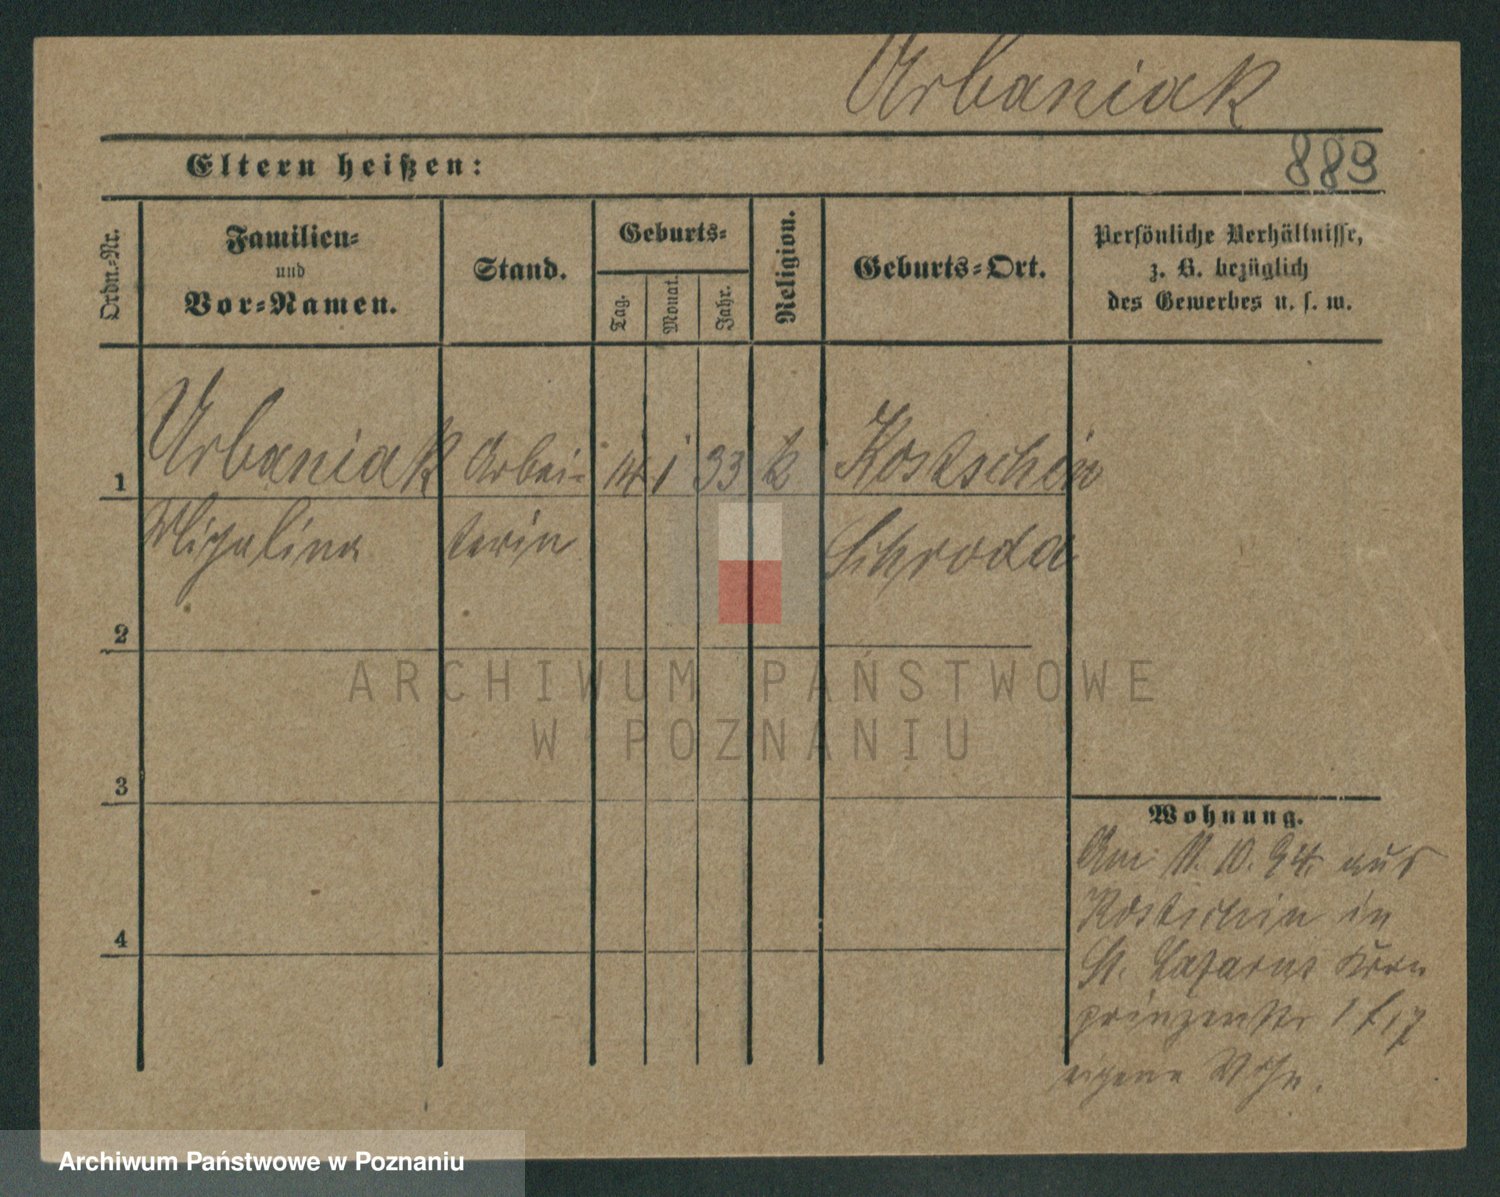 Urbaniak
Eltern heißen:
889
Ordn.-Nr.
Familien-
und
Vor-Namen.
Stand.
Geburts-
Tag.
Monat.
Jahr.
Religion.
Geburts-Ort.
Persönliche Verhältnisse,
z. B. bezüglich
des Gewerbes u. s. w.
1
Urbaniak Arbei- 14 1 33 k Kostschin
terin Schroda
2
3
4
Wohnung.
Am 11. 10. 94. aus
Kostschin in
St. Lazarus Kron
prinzenstr
eigene
ARCHIWUM PAŃSTWOWE
W POZNANIU
Archiwum Państwowe w Poznaniu